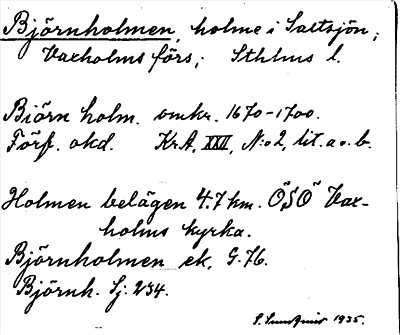 Björnholmen, holme i Saltsjön;
Vaxholms förs.; Sthlms l.
Biörn holm. omkr. 1670-1700.
Förf. okd. KrA, XXII, N:o 2, lit. a o. b.
Holmen belägen 4.7 km. ÖSÖ Vax-
holms kyrka.
Björnholmen ek. G. 76.
Björnh. Sj. 234.
S. Lundquist 1935.